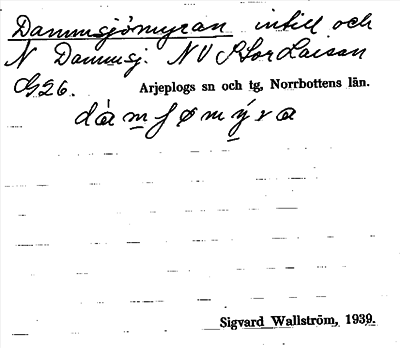 Dammsjömyran intill och
N Dammsj. NV StorLaisan
G26. Arjeplogs sn och tg, Norrbottens län.
dàm̲ʃømýra
Sigvard Wallström, 1939.